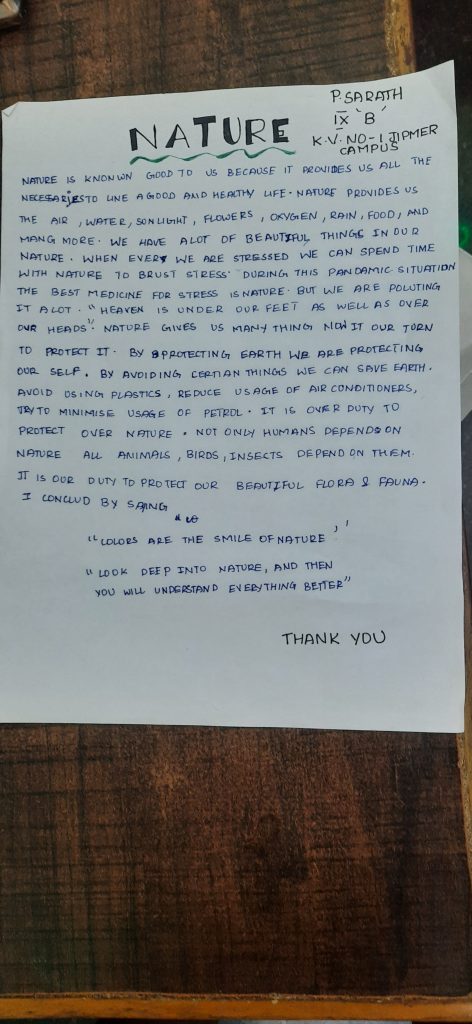 P. SARATH
IX 'B'
K.V. NO-1 JIPMER
CAMPUS
NATURE
NATURE IS KNONWN GOOD TO US BECAUSE IT PROVIDES US ALL THE
NECESARIES TO LINE A GOOD AND HEALTHY LIFE. NATURE PROVIDES US
THE AIR, WATER, SUNLIGHT, FLOWERS, OXYGEN, RAIN, FOOD, AND
MANG MORE. WE HAVE A LOT OF BEAUTIFUL THINGS IN OUR
NATURE. WHEN EVERY WE ARE STRESSED WE CAN SPEND TIME
WITH NATURE TO BRUST STRESS. DURING THIS PANDAMIC SITUATION
THE BEST MEDICINE FOR STRESS IS NATURE. BUT WE ARE POLUTING
IT A LOT. "HEAVEN IS UNDER OUR FEET AS WELL AS OVER
OUR HEADS". NATURE GIVES US MANY THING NOW IT OUR TURN
TO PROTECT IT. BY PROTECTING EARTH WE ARE PROTECTING
OUR SELF. BY AVOIDING CERTIAN THINGS WE CAN SAVE EARTH.
AVOID USING PLASTICS, REDUCE USAGE OF AIR CONDITIONERS,
TRY TO MINIMISE USAGE OF PETROL. IT IS OVER DUTY TO
PROTECT OVER NATURE. NOT ONLY HUMANS DEPENDS ON
NATURE ALL ANIMALS, BIRDS, INSECTS DEPEND ON THEM.
IT IS OUR DUTY TO PROTECT OUR BEAUTIFUL FLORA & FAUNA.
I CONCLUD BY SAING
"COLORS ARE THE SMILE OF NATURE"
"LOOK DEEP INTO NATURE, AND THEN
YOU WILL UNDERSTAND EVERYTHING BETTER"
THANK YOU